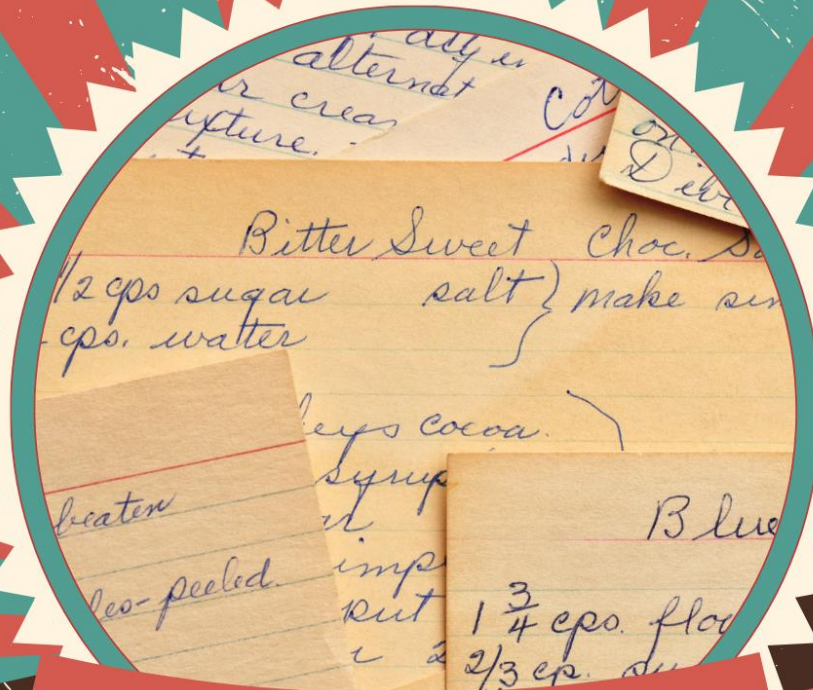 alternat
crea
xture.
on
Bitter Sweet Choc. S
1/2 cps sugar salt } make sim
cps. watter
eys cocoa.
syrup
beaten
les-peeled.
imp
put
2
Blue
1 3/4 cps. flou
2/3 cp. su